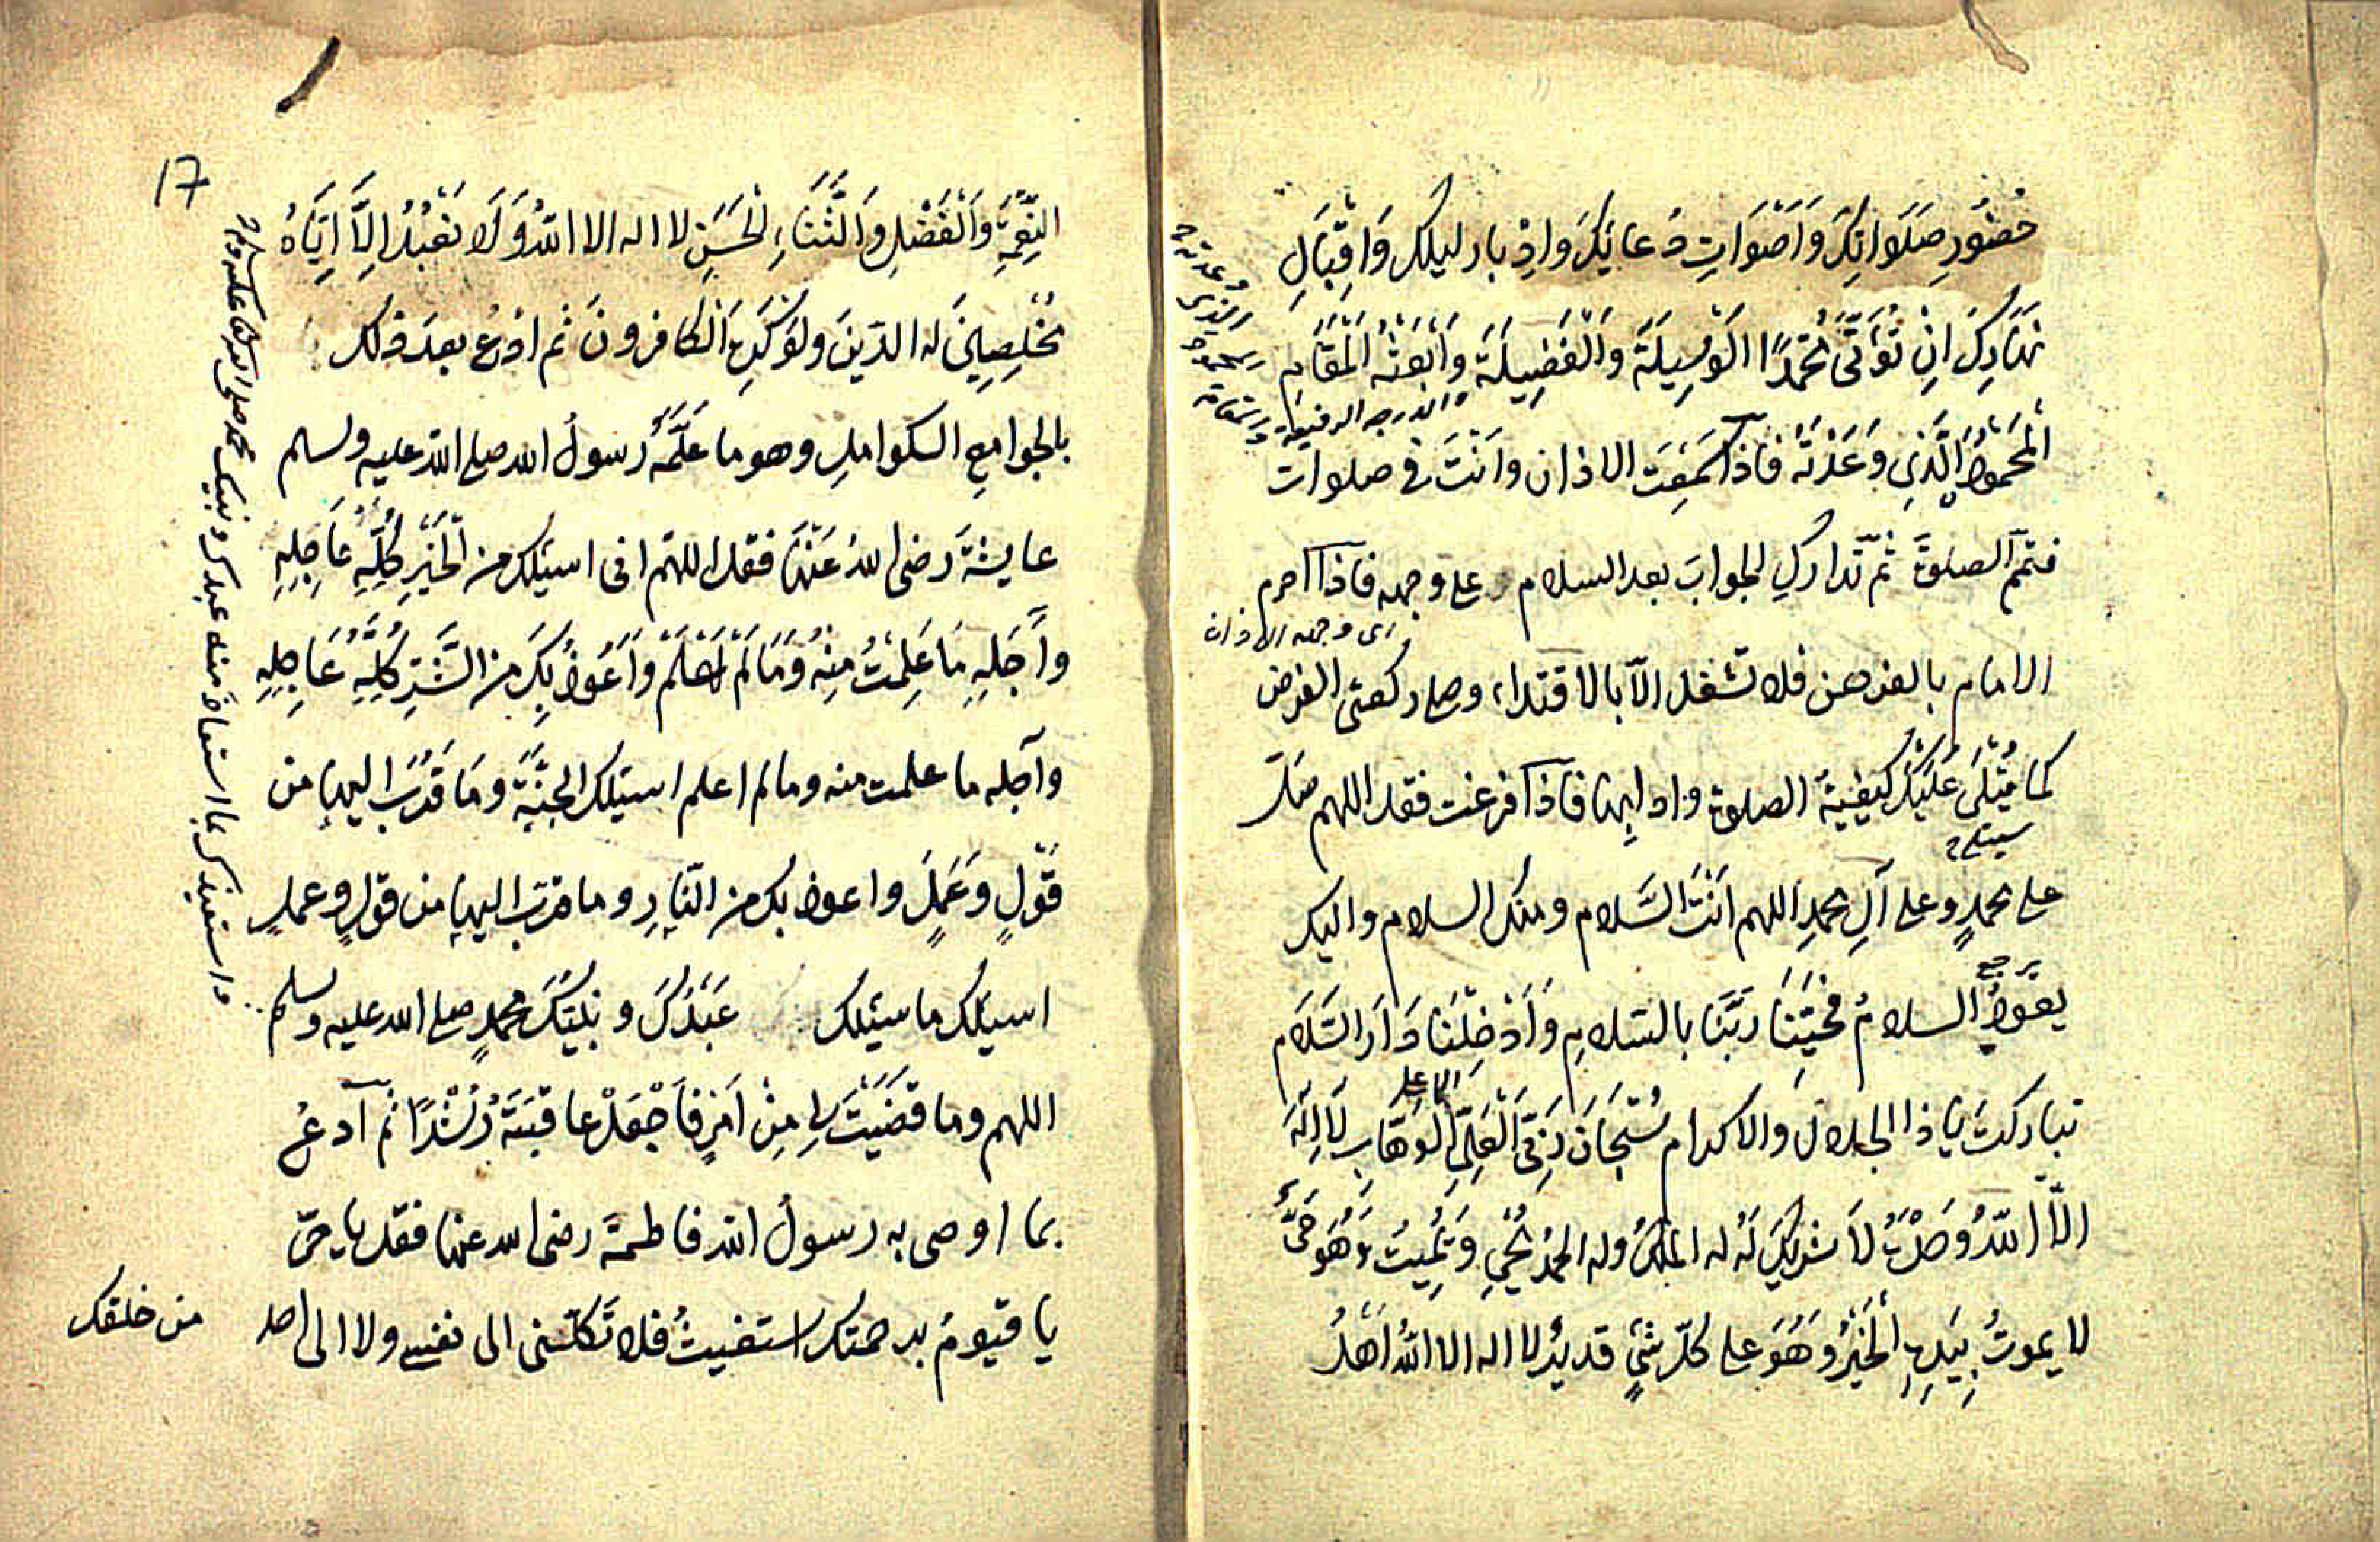 حُضُورِ صَلَوَاتِكَ وَاَصْوَاتِ دُعَائِكَ وَاِدْبَارِ لَيْلِكَ وَاِقْبَالِ
نَهَارِكَ اَنْ تُؤْتِىَ مُحَمَّدًا الْوَسِيلَةَ وَالْفَضِيلَةَ وَابْعَثْهُ الْمَقَامَ
والدرجه الرفيعة
الْمَحْمُودَ الَّذِى وَعَدْتَهُ فَاذا سَمِعْتَ الاذان وَانْتَ فى صلوات
فتمّم الصلوةَ ثمّ تدارك الجوابَ بعد السلام على وجهه فاذا احرم
اى وجهه الاذان
الامام بالفرض فلا تشغل الّا بالاقتداء وصل ركعتى الفرض
كما يُتْلَى عَلَيْكَ كيفيةُ الصلوة وادابها فاذا فرغت فقل اللهم صل
سيتلى
على محمدٍ وعلى آلِ محمدِ اللهم اَنْتَ السَّلام ومنك السلام واليك
يرجع
يعودُ السلامُ فحَيِّنَا رَبَّنَا بالسلامِ وَاَدْخِلْنَا دَارَ السَّلَام
الاعلى
تباركتَ يا ذا الجلال والاكرام سُبْحَانَ رَبِّىَ الْعَلِىِّ الوهّابِ لَا اِلَهَ
الّا اللّهُ وَحْدَهُ لَا شريكَ لَهُ له الملكُ وله الحمدُ يُحْيِى وَيُمِيتُ وَهُوَ حَىٌّ
لا يموتُ بِيَدِهِ الْخَيْرُ وَهُوَ على كلّ شىْءٍ قديرٌ لا اله الا اللّهُ اَهْلُ
17
النِّعْمَةِ وَالْفَضْلِ وَالثَّنَاءِ الْحَسَنِ لا اله الا اللّهُ وَلَا نَعْبُدُ اِلَّا اِيَّاهُ
مُخْلِصِينَ له الدّينَ ولَوْ كَرِهَ الْكافرونَ ثم ادْعُ بعدَ ذلك
بالجوامع الكوامل وهو ما عَلَّمَهُ رسولُ الله صلى الله عليه وسلم
عايشةَ رضى اللهُ عَنْهَا فقل اللهم انى اسئلك من الْخَيْرِ كُلِّهِ عَاجِلِهِ
وآجِلِهِ مَا عَلِمْتُ مِنْهُ وَمَا لَمْ اَعْلَمْ وَاَعُوذُ بِكَ من الشَّرِّ كُلِّهِ عَاجِلِهِ
وآجله ما علمت منه وما لم اعلم اسئلك الجنّةَ ومَا قَرَّبَ اليها من
قَوْلٍ وَعَمَلٍ واعوذ بك من النّارِ وما قرّب اليها من قولٍ وعملٍ
اسئلك ما سئلك عَبْدُكَ ونَبِيُّكَ محمدٍ صلى الله عليه وسلم
واستعيذك مما استعاذ منه عبدك ونبيك محمد صلى الله عليه وسلم
اللهم وما قَضَيْتَ لى مِنْ اَمْرٍ فَاجْعَلْ عاقبتَهُ رُشْدًا ثم ادعُ
بما اوصى به رسولُ الله فاطمةَ رضى الله عنها فقل يا حىّ
يا قيوم برحمتك استغيثُ فلا تَكِلْنى الى نفسى ولا الى احد
من خلقك